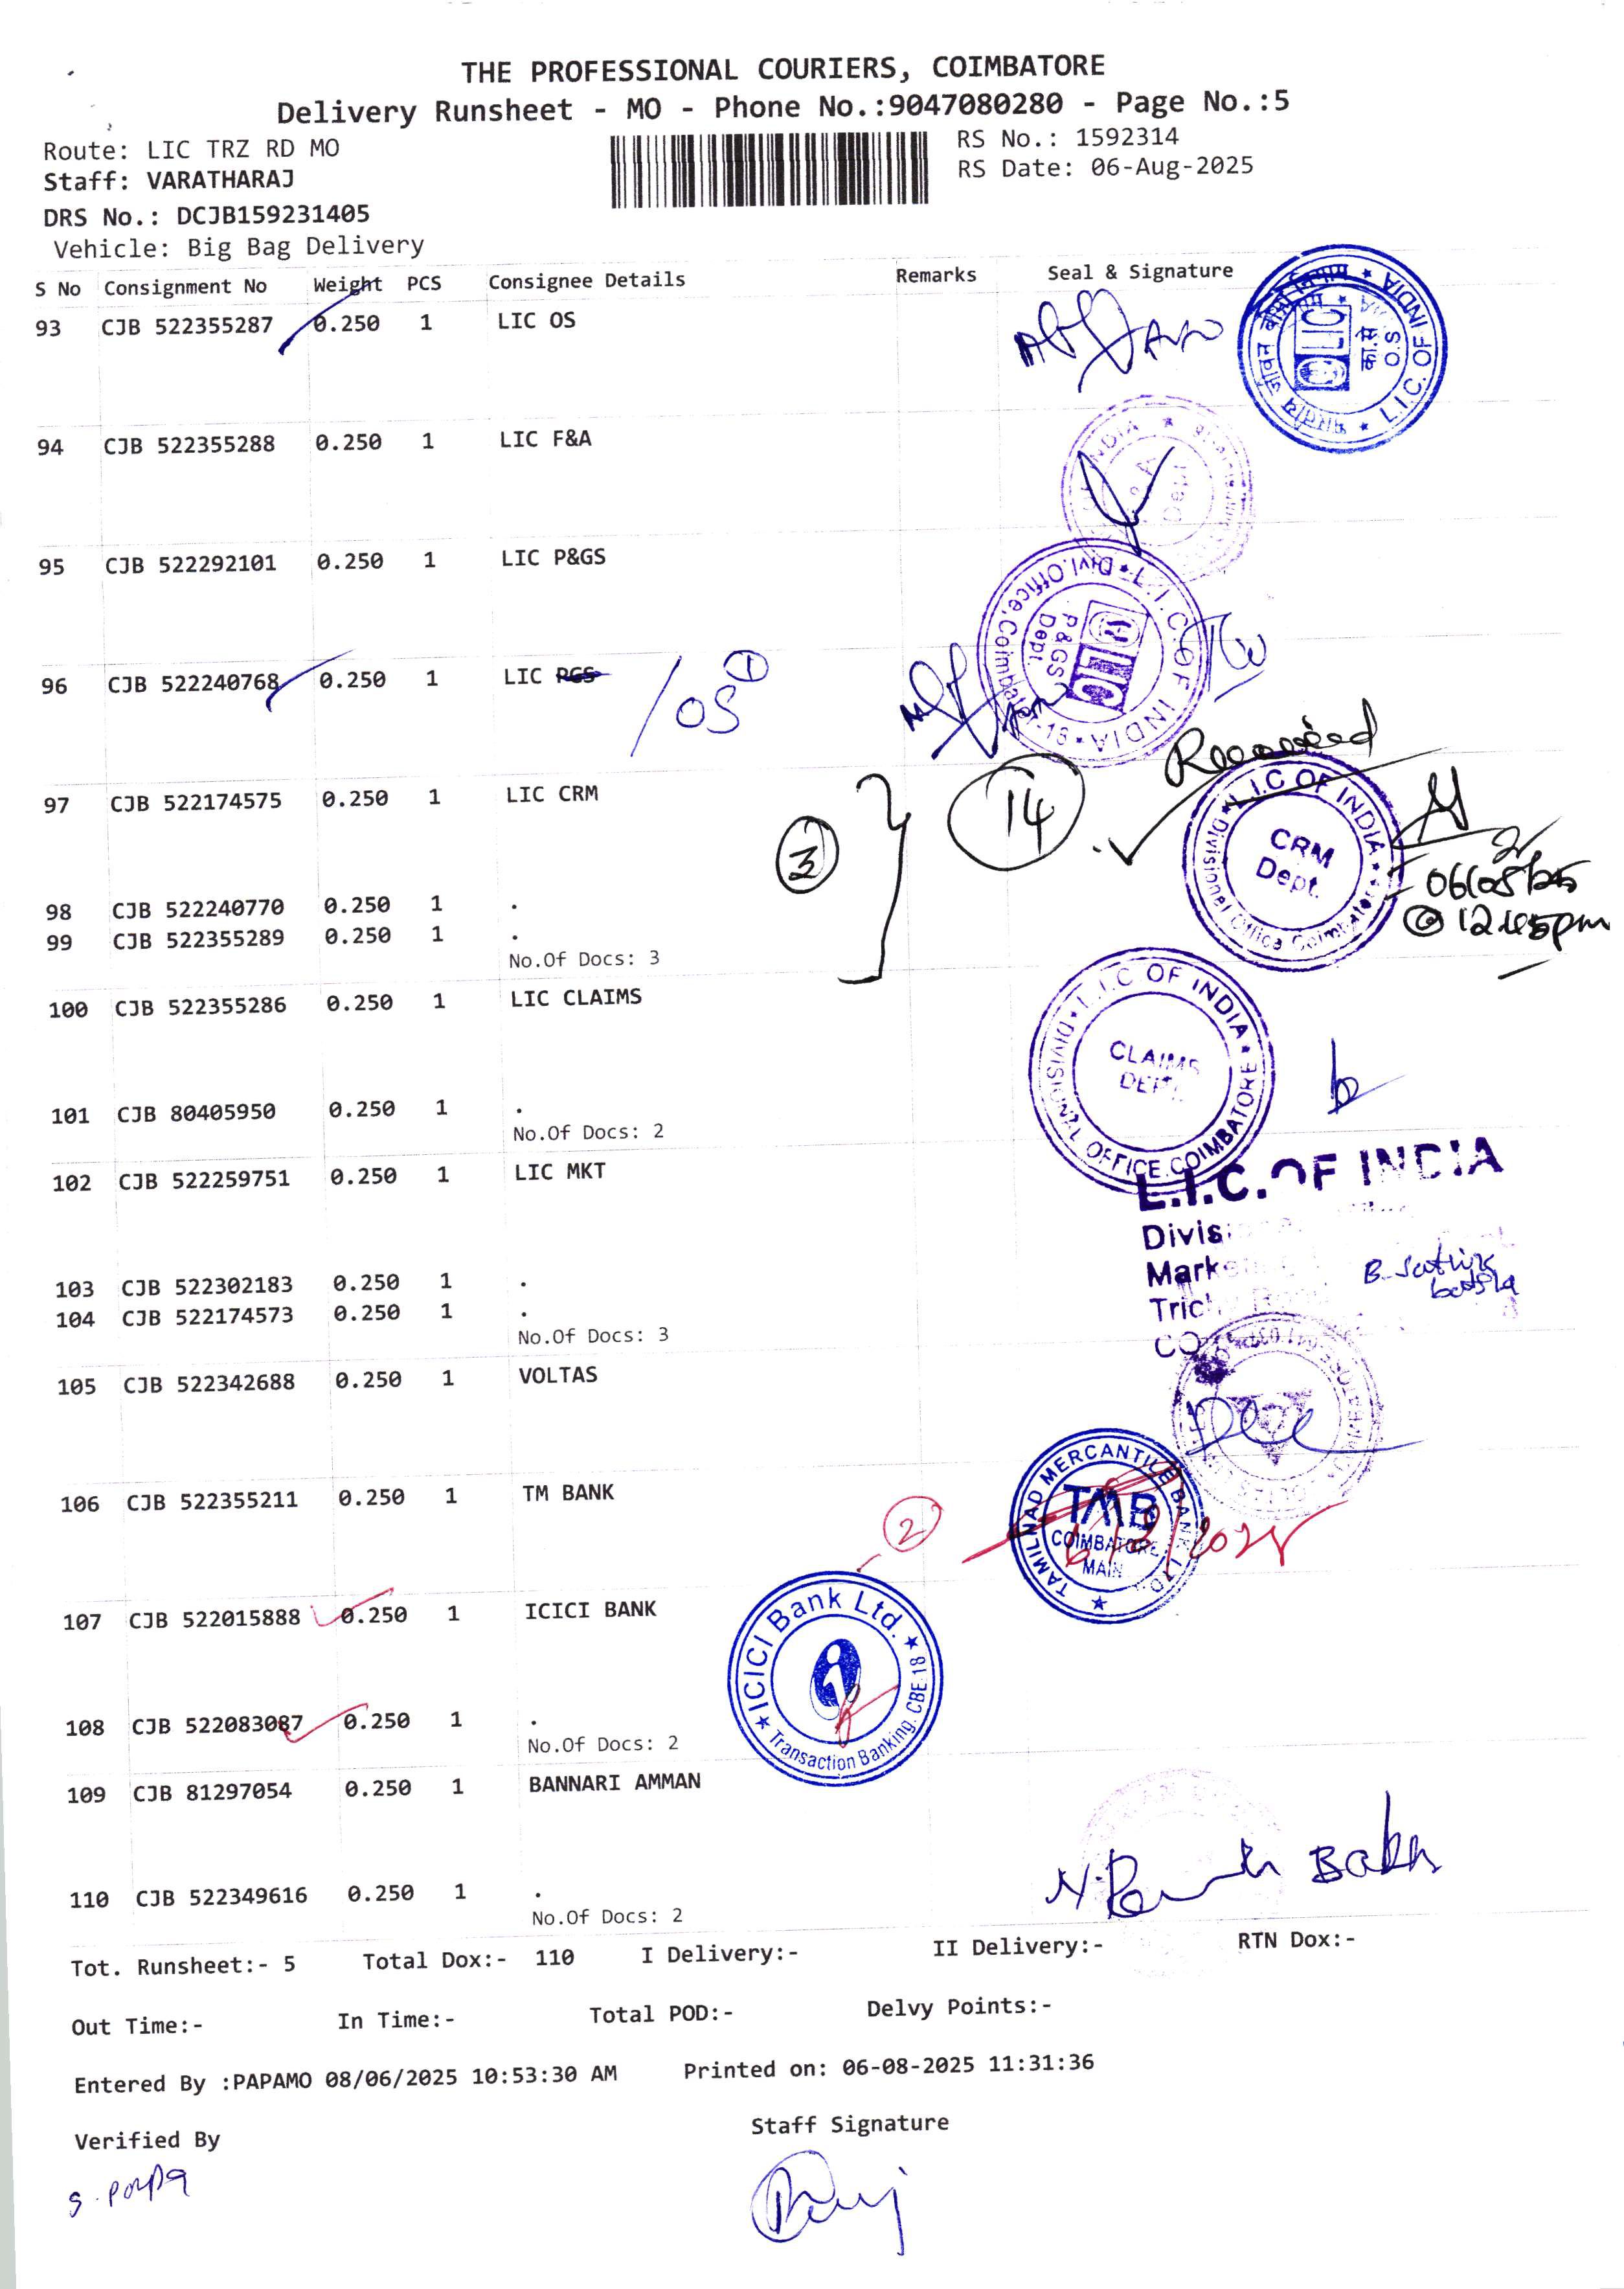 THE PROFESSIONAL COURIERS, COIMBATORE
Delivery Runsheet - MO - Phone No.:9047080280 - Page No.:5
Route: LIC TRZ RD MO
RS No.: 1592314
Staff: VARATHARAJ
RS Date: 06-Aug-2025
DRS No.: DCJB159231405
Vehicle: Big Bag Delivery
S No Consignment No Weight PCS Consignee Details Remarks Seal & Signature
93 CJB 522355287 0.250 1 LIC OS
L.I.C. OF INDIA
LIC
का.से
O.S
94 CJB 522355288 0.250 1 LIC F&A
95 CJB 522292101 0.250 1 LIC P&GS
L.I.C. OF INDIA Divl. Office, Coimbatore-18
LIC
P&GS
Dept.
96 CJB 522240768 0.250 1 LIC PGS /OS 1
97 CJB 522174575 0.250 1 LIC CRM
3 14 Received
L.I.C OF INDIA Divisional Office Coimbatore
CRM
Dept.
98 CJB 522240770 0.250 1 .
99 CJB 522355289 0.250 1 .
No.Of Docs: 3
100 CJB 522355286 0.250 1 LIC CLAIMS
L.I.C OF INDIA DIVISIONAL OFFICE.COIMBATORE
CLAIMS
DEPT.
101 CJB 80405950 0.250 1 .
No.Of Docs: 2
102 CJB 522259751 0.250 1 LIC MKT
L.I.C. OF INDIA
103 CJB 522302183 0.250 1 .
104 CJB 522174573 0.250 1 .
No.Of Docs: 3
105 CJB 522342688 0.250 1 VOLTAS
106 CJB 522355211 0.250 1 TM BANK
2
TAMILNAD MERCANTILE BANK LTD.
TMB
COIMBATORE
MAIN
6/8/2025
107 CJB 522015888 0.250 1 ICICI BANK
ICICI Bank Ltd.
Transaction Banking, CBE-18
108 CJB 522083087 0.250 1 .
No.Of Docs: 2
109 CJB 81297054 0.250 1 BANNARI AMMAN
110 CJB 522349616 0.250 1 .
No.Of Docs: 2
Tot. Runsheet:- 5 Total Dox:- 110 I Delivery:- II Delivery:- RTN Dox:-
Out Time:- In Time:- Total POD:- Delvy Points:-
Entered By :PAPAMO 08/06/2025 10:53:30 AM Printed on: 06-08-2025 11:31:36
Verified By Staff Signature
S. Papa